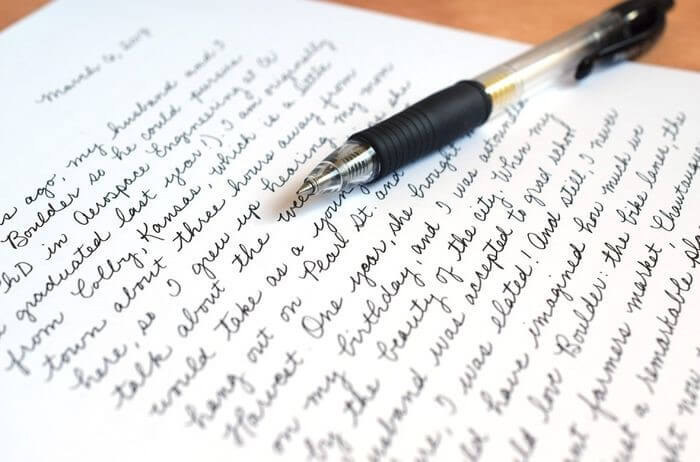 March
ago, my husband and I
Boulder so he could pursue
PhD in Aerospace Engineering at CU
graduated last year!). I am originally
from Colby, Kansas, which is a little
town about three hours away from
here, so I grew up hearing my mom
talk about the
would take as a young
hang out on Pearl St. and
Harvest. One year, she brought
on my birthday, and I was astounded
by the beauty of the city. When my
husband was accepted to grad school
I was elated! And still, I never
have imagined how much we
would love Boulder: the bike lanes, the
farmers market, Chautauqua
just a remarkable